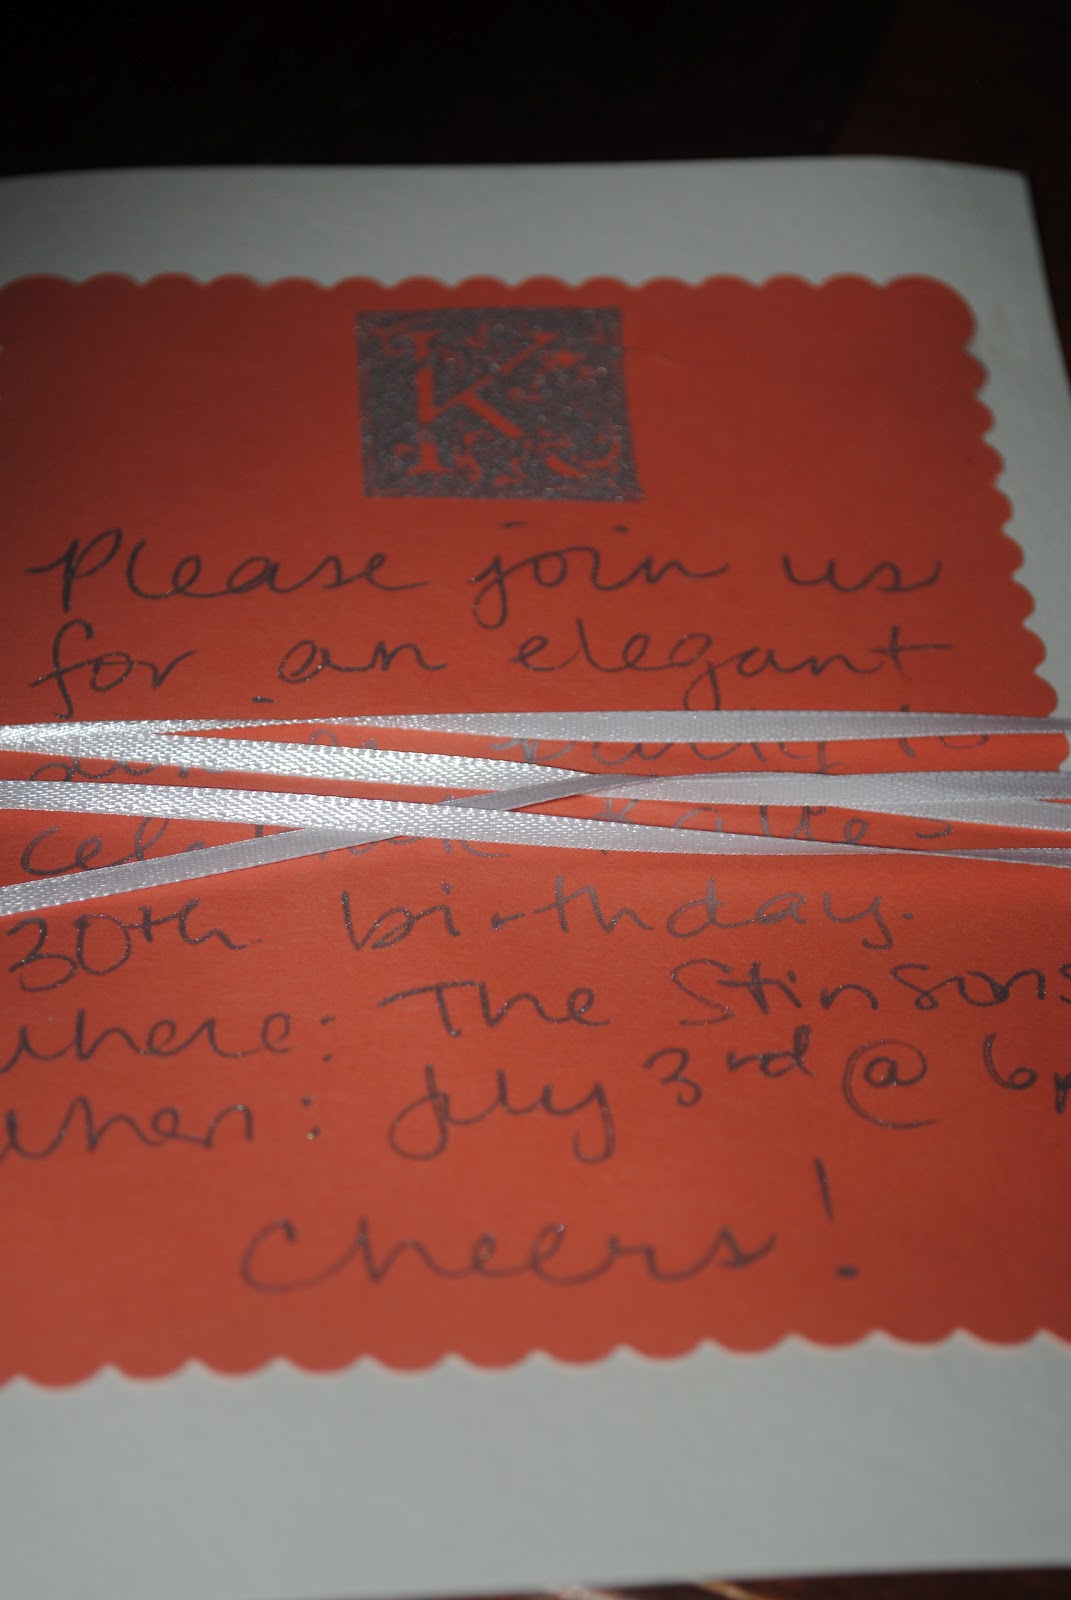 K
Please join us
for an elegant
party to
celebrate Katie's
30th birthday.
where: The Stinsons
when: July 3rd @ 6p
cheers!